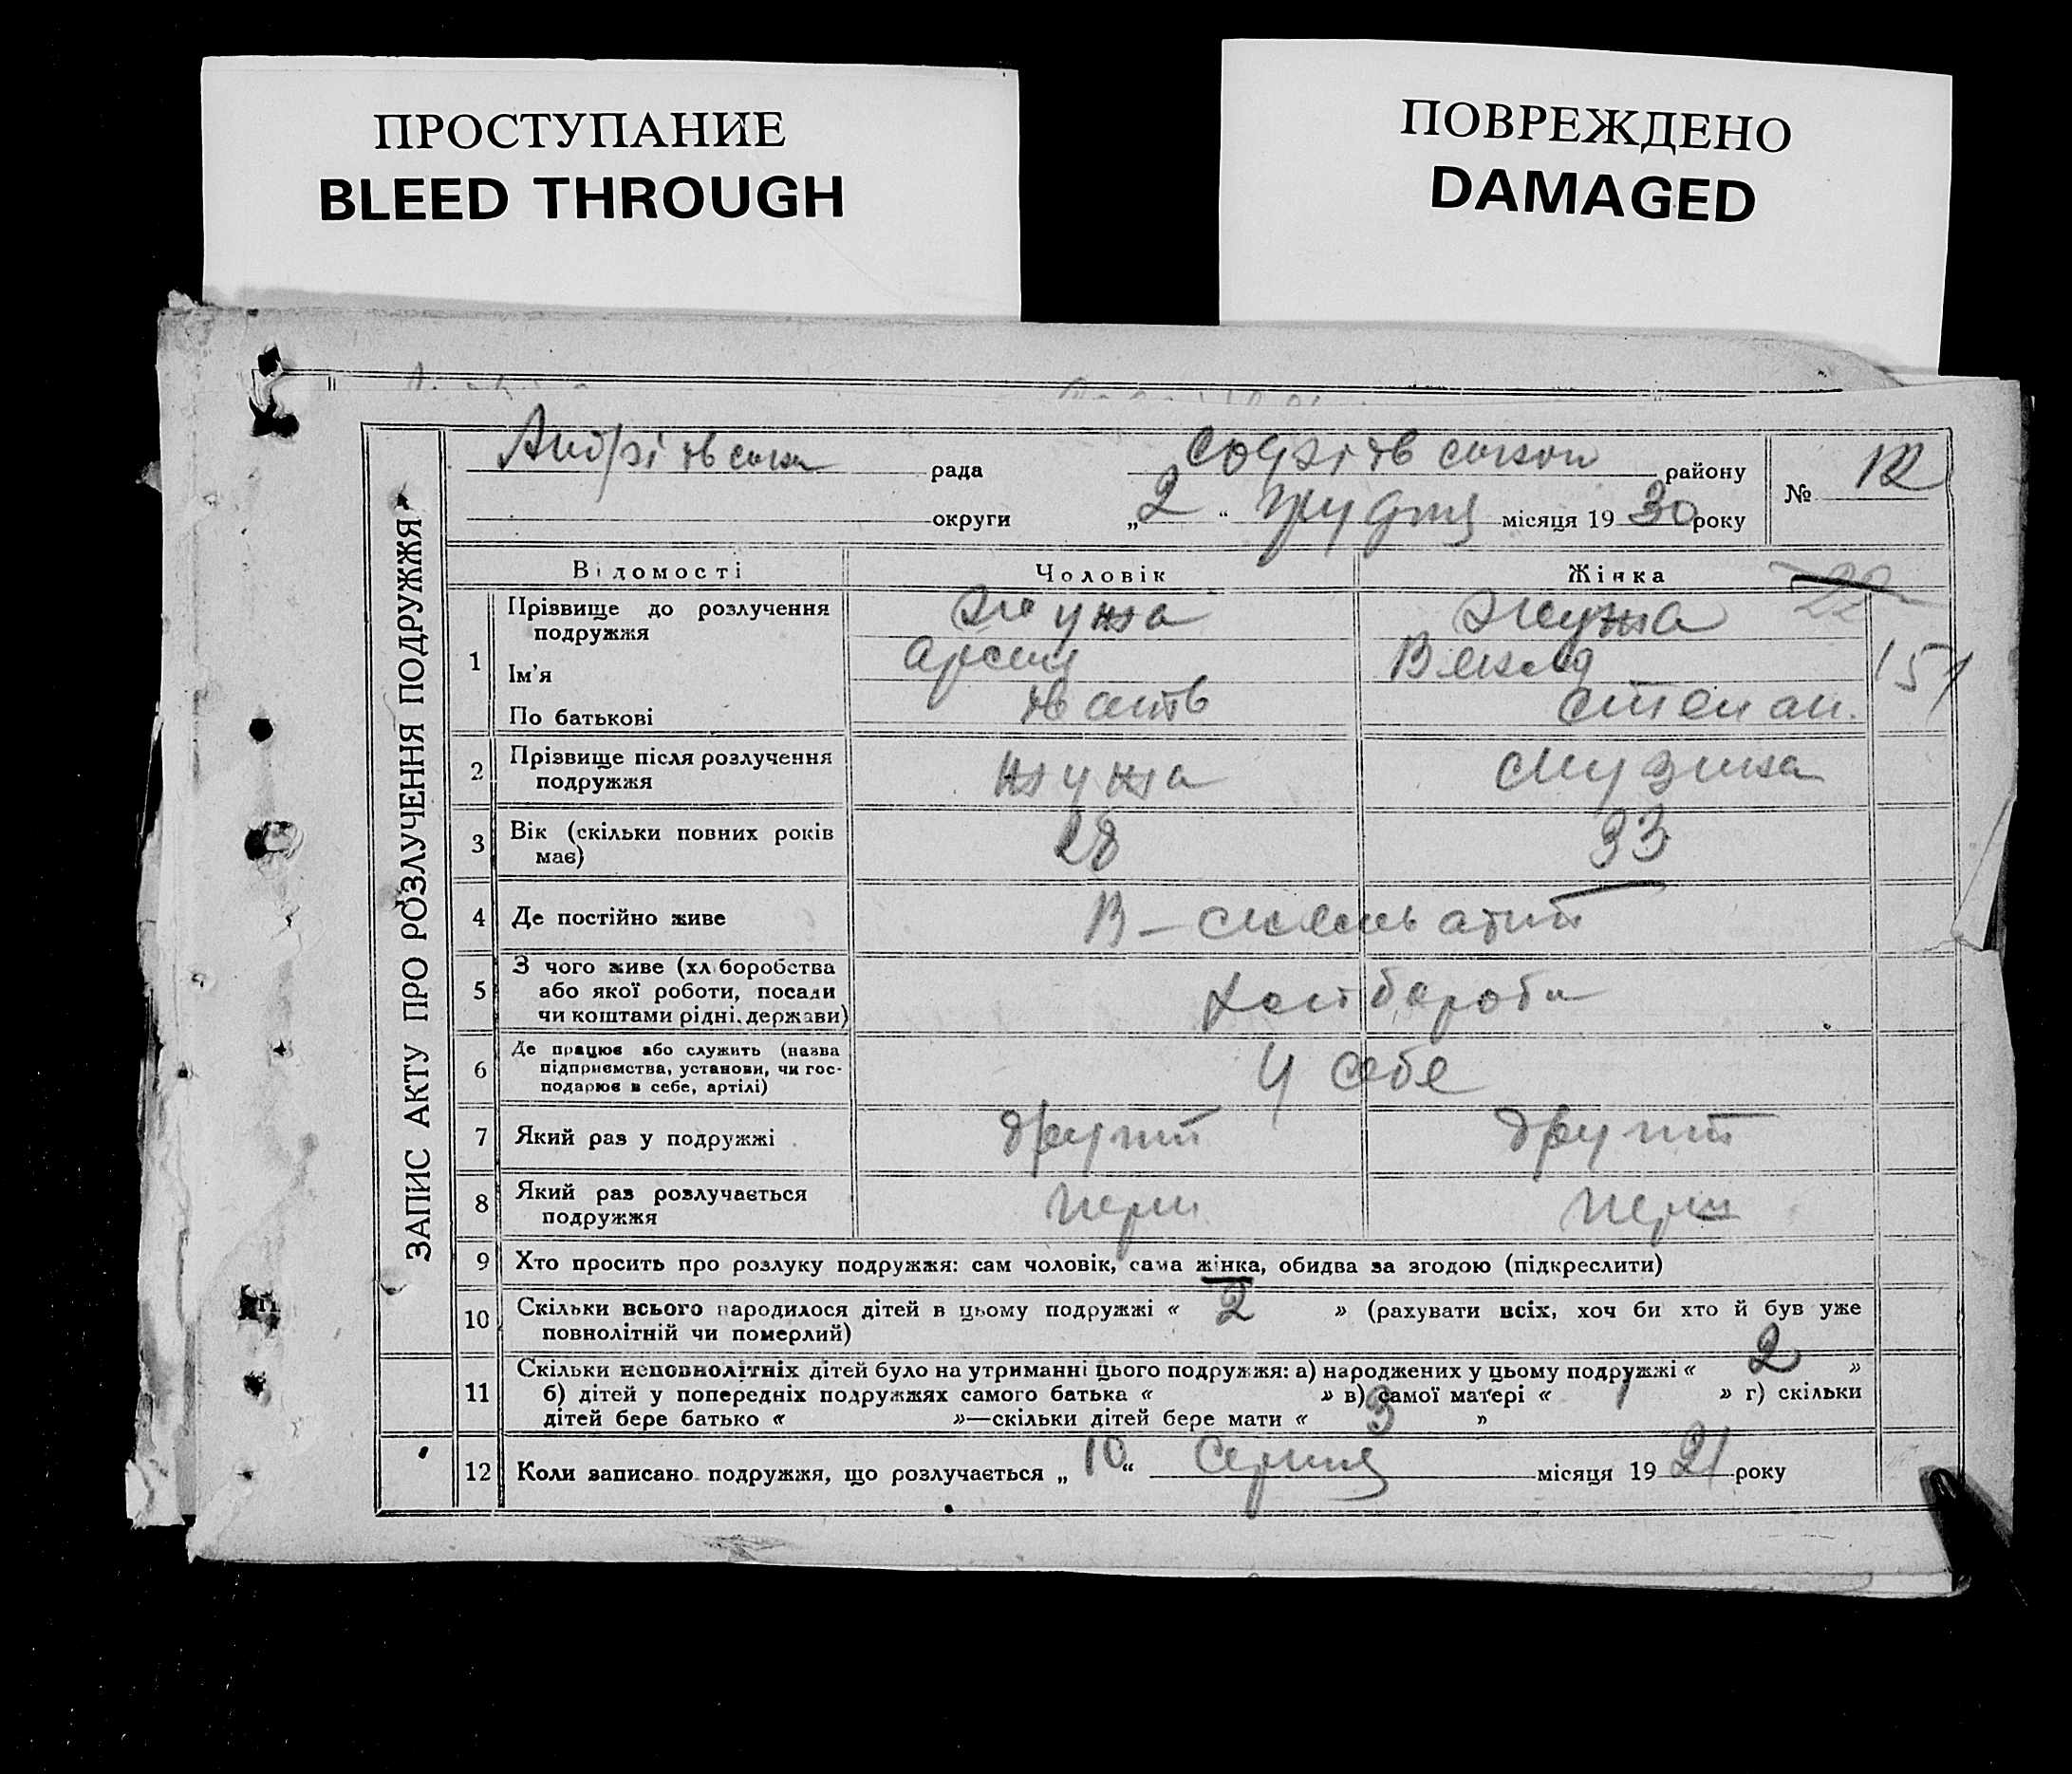 ПРОСТУПАНИЕ
BLEED THROUGH
ПОВРЕЖДЕНО
DAMAGED
ЗАПИС АКТУ ПРО РОЗЛУЧЕННЯ ПОДРУЖЖЯ
Андріївська рада району № 12
округи „2“ грудня місяця 1930 року
Відомості Чоловік Жінка 22
1 Прізвище до розлучення подружжя Жужа Жужа
Ім'я Арсен 151
По батькові Степан.
2 Прізвище після розлучення
подружжя Жужа Музика
3 Вік (скільки повних років
має) 28 33
4 Де постійно живе В –
5 З чого живе (хліборобства
або якої роботи, посади
чи коштами рідні, держави)
6 Де працює або служить (назва
підприємства, установи, чи гос-
подарює в себе, артілі) У себе
7 Який раз у подружжі другий другий
8 Який раз розлучається
подружжя перш перш
9 Хто просить про розлуку подружжя: сам чоловік, сама жінка, обидва за згодою (підкреслити)
10 Скільки всього народилося дітей в цьому подружжі « 2 » (рахувати всіх, хоч би хто й був уже
повнолітній чи померлий)
11 Скільки неповнолітніх дітей було на утриманні цього подружжя: а) народжених у цьому подружжі « 2 »
б) дітей у попередніх подружжях самого батька « » в) самої матері « 1 » г) скільки
дітей бере батько « »—скільки дітей бере мати « 3 »
12 Коли записано подружжя, що розлучається „10“ Серпня місяця 1921 року